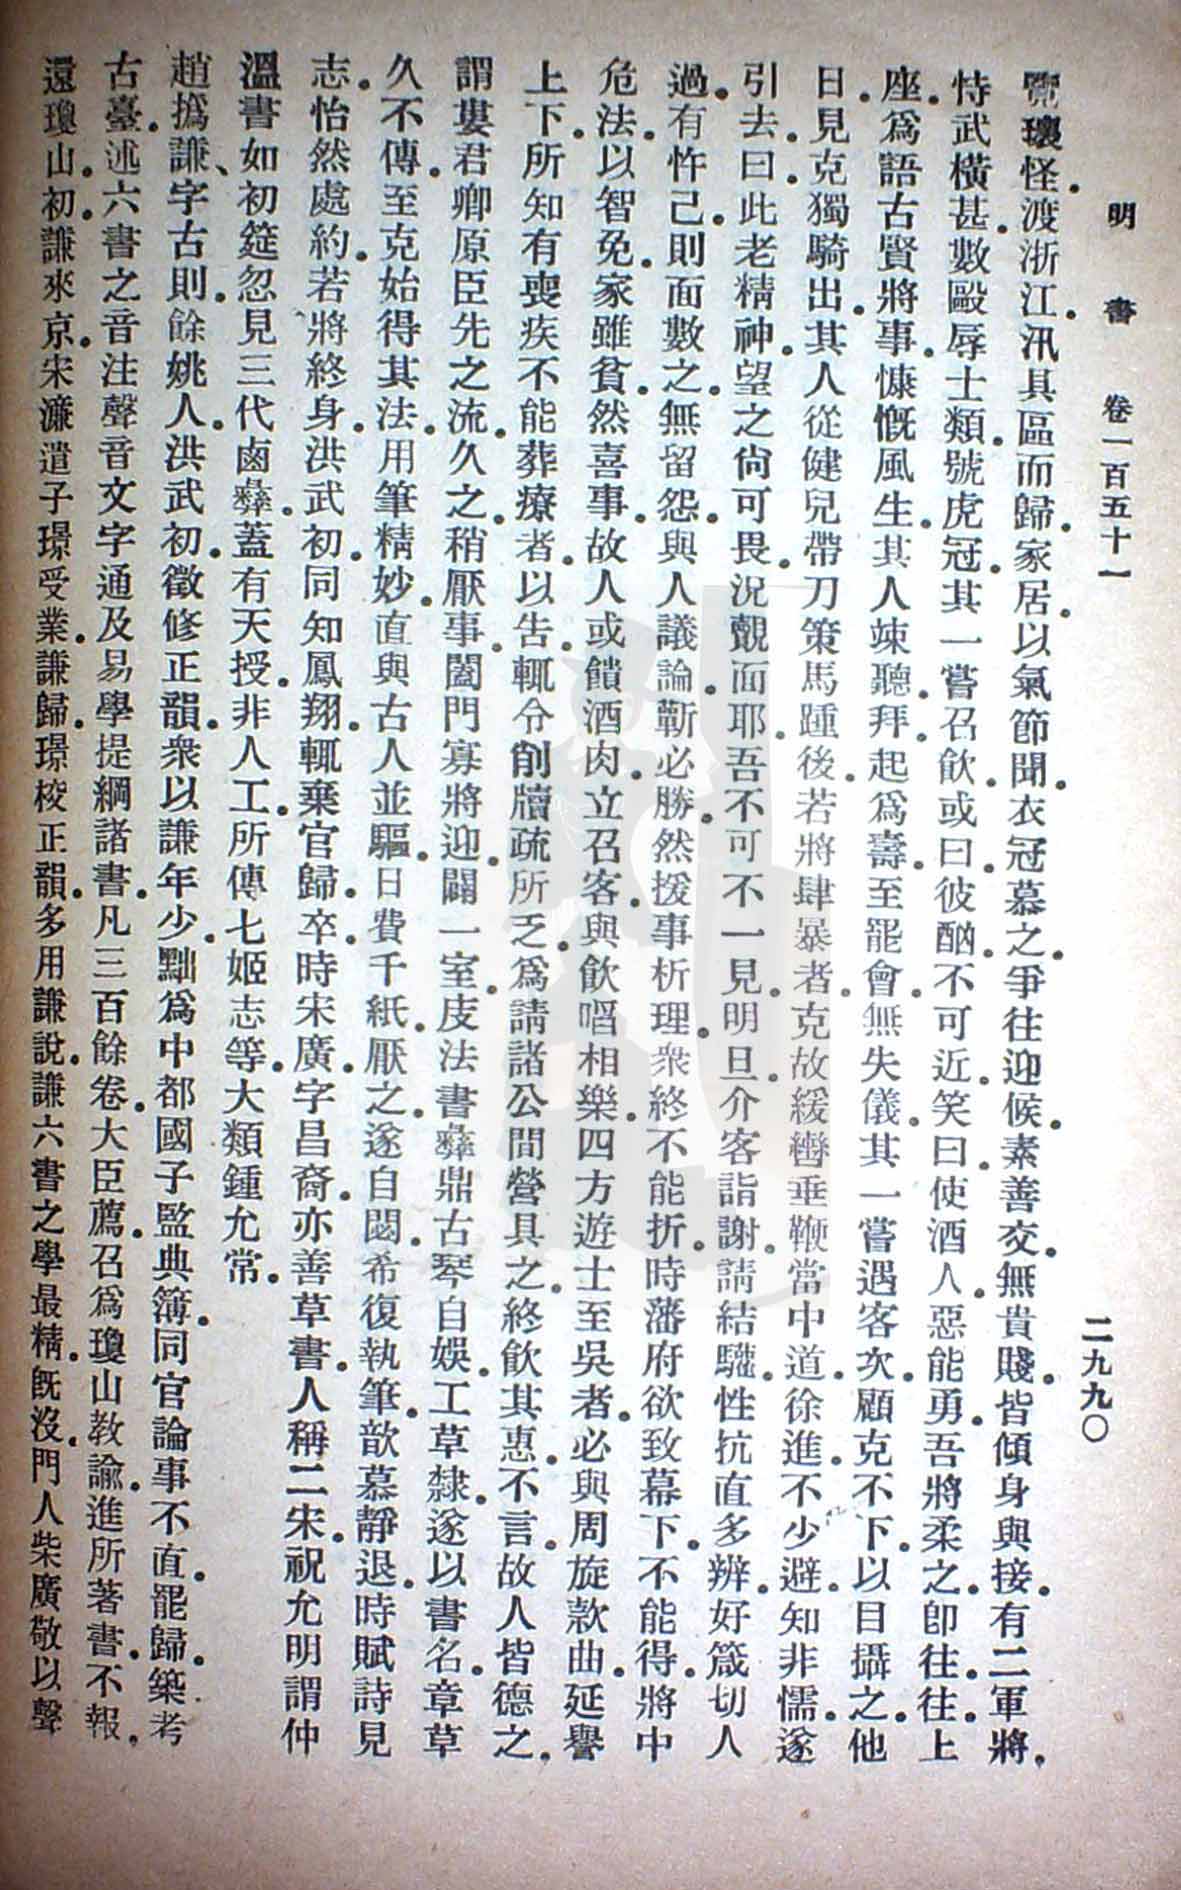 明書 卷一百五十一 二九九〇
覽瓌怪。渡浙江。汎具區而歸。家居。以氣節聞。衣冠慕之。爭往迎候。素善交。無貴賤。皆傾身與接。有二軍將。
恃武橫甚。數毆辱士類。號虎冠。其一嘗召飲。或曰。彼酗。不可近。笑曰。使酒人。惡能勇。吾將柔之。卽往。往上
座。爲語古賢將事。慷慨風生。其人竦聽。拜。起爲壽。至罷會。無失儀。其一嘗遇客次。顧克不下。以目攝之。他
日。見克獨騎出。其人從健兒帶刀策馬踵後。若將肆暴者。克故緩轡垂鞭。當中道。徐進。不少避。知非懦。遂
引去。曰。此老精神。望之尙可畏。況覿面耶。吾不可不一見。明旦。介客詣謝。請結驩。性抗直多辨。好箴切人
過。有忤己。則面數之。無留怨。與人議論。蘄必勝。然援事析理。衆終不能折。時藩府欲致幕下。不能得。將中
危法。以智免。家雖貧。然喜事。故人或饋酒肉。立召客。與飲啗相樂。四方遊士至吳者。必與周旋款曲。延譽
上下。所知有喪疾不能葬療者。以告。輒令削牘疏所乏。爲請諸公間營具之。終飲其惠。不言。故人皆德之。
謂婁君卿原臣先之流。久之。稍厭事。闔門寡將迎。闢一室。庋法書彝鼎古琴自娛。工草隸。遂以書名。章草
久不傳。至克始得其法。用筆精妙。直與古人並驅。日費千紙。厭之。遂自閟。希復執筆。歆慕靜退。時賦詩見
志。怡然處約。若將終身。洪武初。同知鳳翔。輒棄官歸。卒。時宋廣。字昌裔。亦善草書。人稱二宋。祝允明謂仲
溫書如初筵忽見三代鹵彝。蓋有天授。非人工。所傳七姬志等。大類鍾允常。
趙撝謙、字古則。餘姚人。洪武初。徵修正韻。衆以謙年少。黜爲中都國子監典簿。同官論事不直。罷歸。築考
古臺。述六書之音注聲音文字通及易學提綱諸書。凡三百餘卷。大臣薦。召爲瓊山教諭。進所著書。不報。
還瓊山。初。謙來京。宋濂遣子璟受業。謙歸。璟校正韻。多用謙說。謙六書之學最精。旣沒。門人柴廣敬以聲